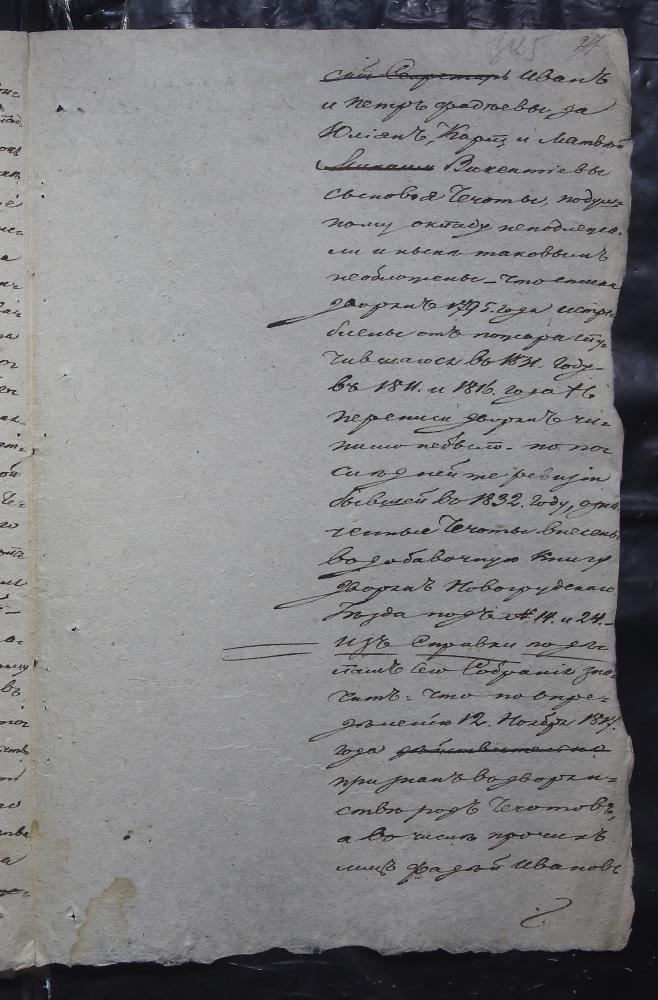 845 27
скій Секретарь Иванъ
и Петръ Фадѣевы да
Юліянъ, Карлъ и Матвѣй
Викентіевы
сыновья Чечоты, подуш-
ному окладу неподлежа-
ли и нынѣ таковымъ
необложены – что списки
дворянъ 1795. года истре-
блены отъ пожара слу-
чившагося въ 1831. году –
въ 1811. и 1816. года
переписи дворянъ чи-
нимо небыло – по по-
слѣдней же ревизіи
бывшей въ 1832. году, озна-
ченные Чечоты внесены
въ добавочную книгу
дворянъ Новогрудскаго
Уѣзда подъ № 14. и 24. –
Изъ Справки по дѣ-
ламъ сего Собранія зна-
читъ: что по опре-
дѣленію 12. Ноября 181
года дѣйствительно
признанъ въ дворян-
ствѣ родъ Чечотовъ,
а въ числѣ прочихъ
лицъ Фадѣй Ивановъ